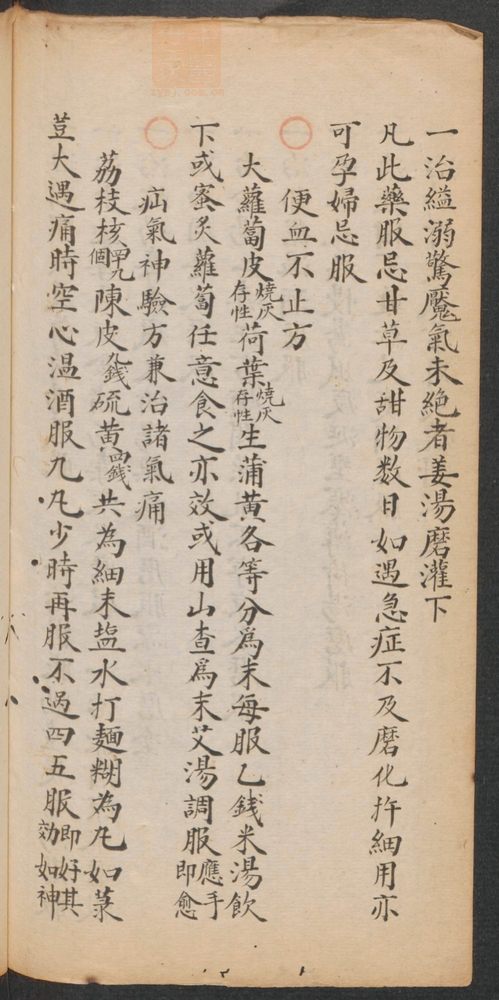 一治縊溺驚魘氣未絕者姜湯磨灌下
凡此藥服忌甘草及甜物数日如遇急症不及磨化杵細用亦
可孕婦忌服
便血不止方
大蘿蔔皮燒灰存性荷葉燒灰存性生蒲黃各等分爲末每服乙錢米湯飲
下或蜜炙蘿蔔任意食之亦效或用山查爲末艾湯調服應手即愈
疝氣神驗方兼治諸氣痛
荔枝核四十九個陳皮九錢硫黃四錢共為細末盐水打麵糊為丸如菉
荳大遇痛時空心温酒服九丸少時再服不過四五服即好其効如神